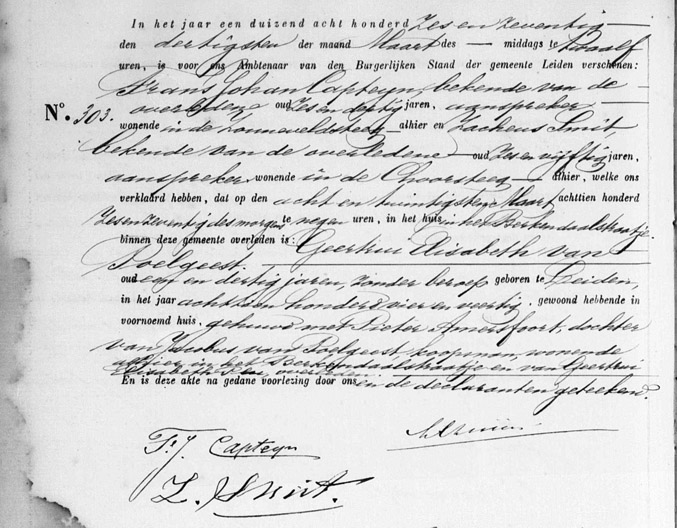 In het jaar een duizend acht honderd Zes en Zeventig
den dertigsten der maand Maart des — middags te twaalf
uren, is voor ons Ambtenaar van den Burgerlijken Stand der gemeente Leiden verschenen:
Frans Johan Capteyn, bekende van de
No. 303. overledene oud Zes en dertig jaren, aanspreker
wonende in de Zonneveldsteeg alhier en Zacheus Smit,
bekende van de overledene oud Zes en vijftig jaren,
aanspreker wonende in de Choorsteeg alhier, welke ons
verklaard hebben, dat op den acht en twintigsten Maart achttien honderd
Zes en Zeventig des morgens te negen uren, in het huis in het Berkendaalstraatje
binnen deze gemeente overleden is: Geertrui Elisabeth van
Poelgeest.
oud een en dertig jaren, zonder beroep geboren te Leiden,
in het jaar achttien honderd vier en veertig, gewoond hebbende in
voornoemd huis, gehuwd met Pieter Amersfoort, dochter
van Jacobus van Poelgeest, koopman, wonende
alhier in het Berkendaalstraatje en van Geertrui
Elisabeth overleden.
En is deze akte na gedane voorlezing door ons en de declaranten geteekend.
Fr. J. Capteyn
Z. Smit.